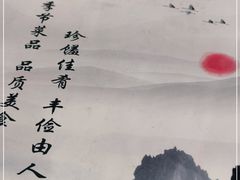 珍馐佳肴 丰俭由人
季节菜品 品质美食